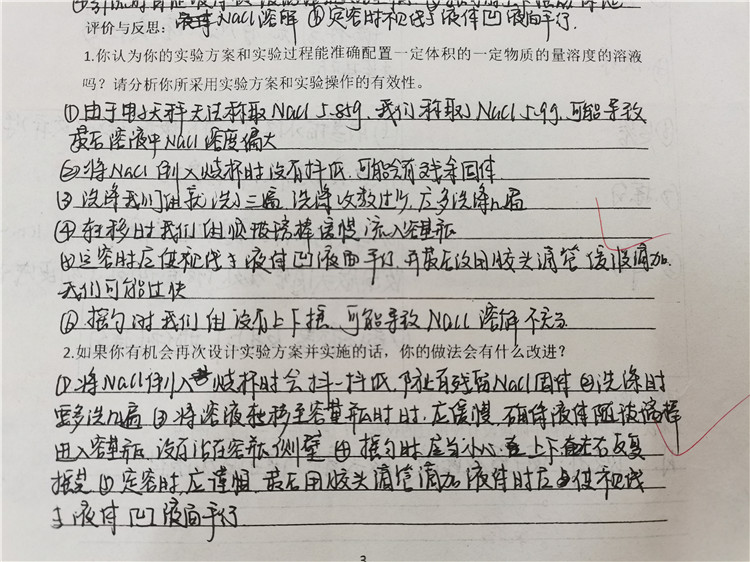 NaCl溶解 ⑥定容时视线与液体凹液面平行.
评价与反思:
1.你认为你的实验方案和实验过程能准确配置一定体积的一定物质的量溶度的溶液
吗？请分析你所采用实验方案和实验操作的有效性。
①由于电子天秤无法称取NaCl 5.85g,我们称取了NaCl 5.9g,可能导致
最后溶液中NaCl密度偏大
②将NaCl倒入烧杯时没有抖纸,可能会有残余固体
③洗涤我们组就洗了三遍,洗涤次数过少,应多洗涤几遍
④转移时我们组顺玻璃棒缓慢流入容量瓶
⑤定容时应使视线与液体凹液面平行,并最后改用胶头滴管缓慢滴加.
我们可能过快
⑥摇匀时我们组没有上下摇,可能导致NaCl溶解不充分
2.如果你有机会再次设计实验方案并实施的话，你的做法会有什么改进？
①将NaCl倒入烧杯时会抖一抖纸,防止有残留NaCl固体 ②洗涤时
要多洗几遍 ③将溶液转移至容量瓶时时,应缓慢,确保液体随玻璃棒
进入容量瓶,没有沾在容瓶侧壁 ④摇匀时应当小心,上下左右反复
摇荡 ⑤定容时,应谨慎,最后用胶头滴管滴加液体时应使视线
与液体凹液面平行
3